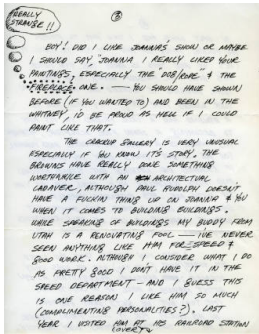 REALLY
STRANGE!!
③
BOY! DID I LIKE JOANNA'S SHOW OR MAYBE
I SHOULD SAY, "JOANNA I REALLY LIKED YOUR
PAINTINGS, ESPECIALLY THE "DOB/ROPE" & THE
FIREPLACE ONE. — YOU SHOULD HAVE SHOWN
BEFORE (IF YOU WANTED TO) AND BEEN IN THE
WHITNEY, I'D BE PROUD AS HELL IF I COULD
PAINT LIKE THAT.
THE CRACKUP GALLERY IS VERY UNUSUAL
ESPECIALLY IF YOU KNOW ITS STORY. THE
BROWNS HAVE REALLY DONE SOMETHING
WORTHWHILE WITH AN ARCHITECTURAL
CADAVER, ALTHOUGH PAUL RUDOLPH DOESN'T
HAVE A FUCKIN THING UP ON JOANNA & YOU
WHEN IT COMES TO BUILDING BUILDINGS.
WHILE SPEAKING OF BUILDINGS MY BUDDY FROM
UTAH IS A RENOVATING FOOL — I'VE NEVER
SEEN ANYTHING LIKE HIM FOR SPEED &
GOOD WORK. ALTHOUGH I CONSIDER WHAT I DO
AS PRETTY GOOD I DON'T HAVE IT IN THE
SPEED DEPARTMENT — AND I GUESS THIS
IS ONE REASON I LIKE HIM SO MUCH
(COMPLIMENTING PERSONALITIES?). LAST
YEAR I VISITED HIM AT HIS RAILROAD STATION
(OVER)